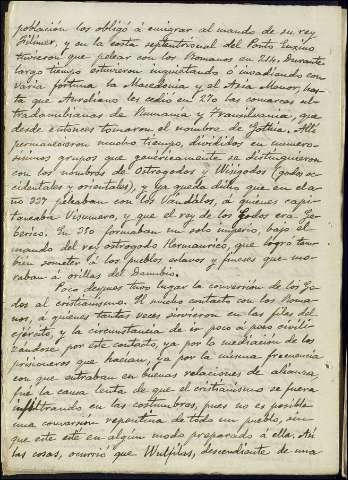 población los obligó á emigrar al mando de su rey
Filimer, y en la costa septentrional del Ponto Euxino
tuvieron que pelear con los Romanos en 214. Durante
largo tiempo estuvieron inquietando é invadiendo con
varia fortuna la Macedonia y el Asia Menor, has-
ta que Aureliano les cedió en 270 las comarcas ul-
tradanubianas de Rumania y Transilvania, que
desde entonces tomaron el nombre de Gothia. Allí
permanecieron mucho tiempo, divididos en numero-
sísimos grupos que genéricamente se distinguieron
con los nombres de Ostrogodos y Wisigodos (godos oc-
cidentales y orientales), y ya queda dicho que en el a-
ño 337 peleaban con los Vándalos, á quienes capi-
taneaba Visumaro, y que el rey de los Godos era Ge-
berico. En 350 formaban un solo imperio, bajo el
mando del rey ostrogodo Hermanrico, que logró tam-
bién someter á los pueblos eslavos y fineses que mo-
raban á orillas del Danubio.
Poco despues tuvo lugar la conversión de los Go-
dos al cristianismo. El mucho contacto con los Roma-
nos, á quienes tantas veces sirvieron en las filas del
ejército, y la circunstancia de ir poco á poco civili-
zándose por este contacto, ya por la mediación de los
prisioneros que hacian, ya por la misma frecuencia
con que entraban en buenas relaciones de alianza,
fué la causa lenta de que el cristianismo se fuera
infiltrando en las costumbres, pues no es posible
una conversión repentina de todo un pueblo, sin
que este esté en algún modo preparado á ella. Así
las cosas, ocurrió que Wulfilas, descendiante de una